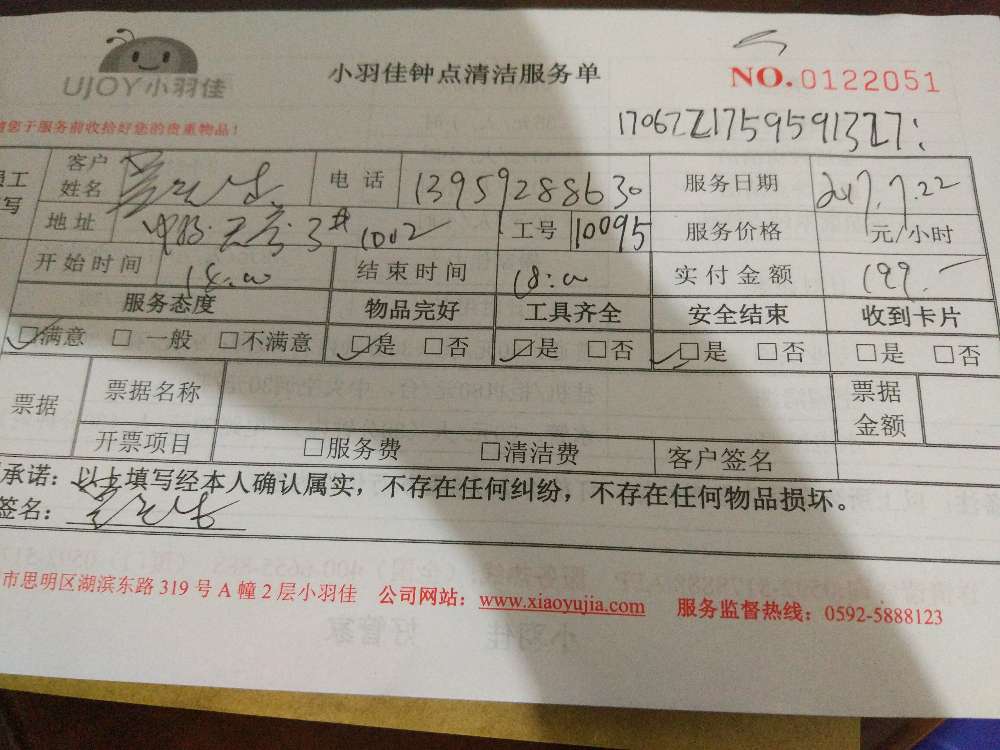 UJOY小羽佳
小羽佳钟点清洁服务单
NO.0122051
您于服务前收拾好您的贵重物品!
客户姓名 电话 13959288630 服务日期 2017.7.22
地址 3# 1002 工号 10095 服务价格 元/小时
开始时间 14:00 结束时间 18:00 实付金额 199.-
服务态度 物品完好 工具齐全 安全结束 收到卡片
☑满意 □一般 □不满意 ☑是 □否 ☑是 □否 ☑是 □否 □是 □否
票据 票据名称 票据金额
开票项目 □服务费 □清洁费 客户签名
承诺：以上填写经本人确认属实，不存在任何纠纷，不存在任何物品损坏。
签名：
市思明区湖滨东路 319 号 A 幢 2 层小羽佳 公司网站：www.xiaoyujia.com 服务监督热线：0592-5888123